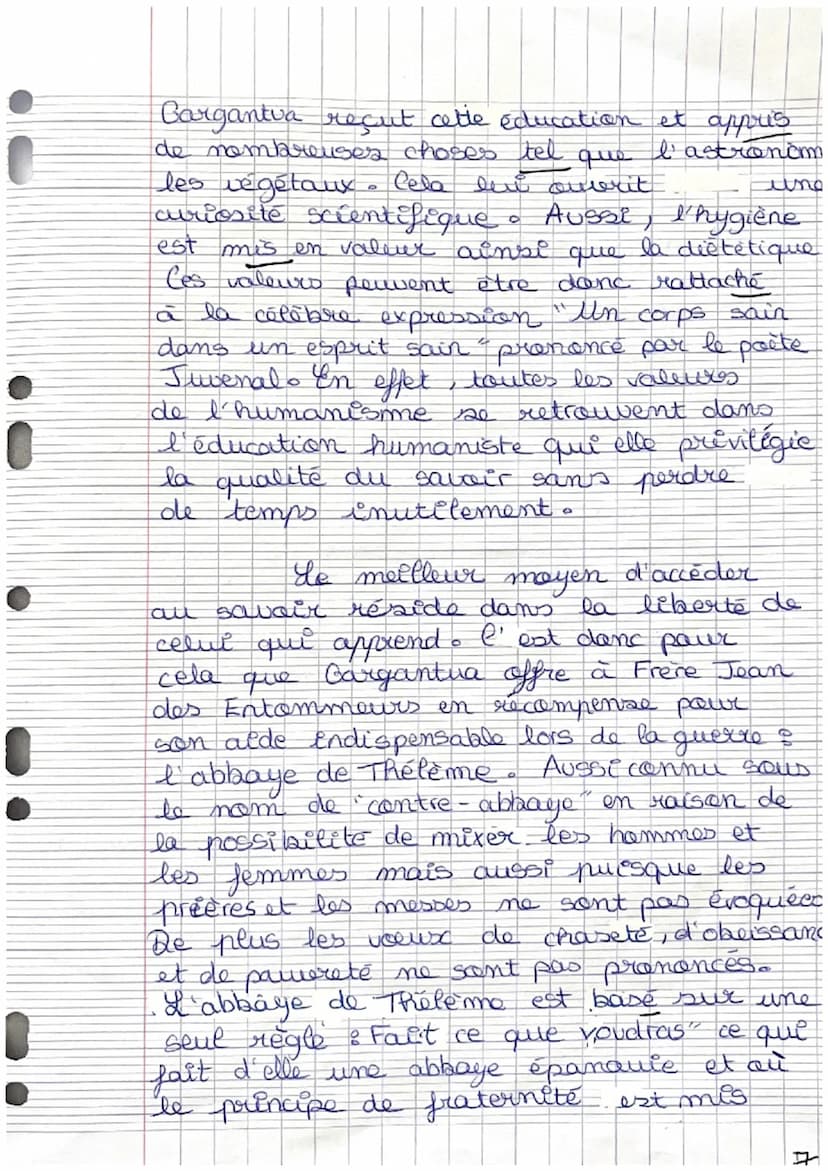 Gargantua reçut cette éducation et appris
de nombreuses choses tel que l'astronom
les végétaux. Cela lui ouvrit une
curiosité scientifique. Aussi, l'hygiène
est mis en valeur ainsi que la diététique
Ces valeurs peuvent être donc rattaché
à la célèbre expression "Un corps sain
dans un esprit sain" prononcé par le poète
Juvenal. En effet, toutes les valeures
de l'humanisme se retrouvent dans
l'éducation humaniste qui elle privilégie
la qualité du savoir sans perdre
de temps inutilement.
Le meilleur moyen d'accéder
au savoir réside dans la liberté de
celui qui apprend. C'est donc pour
cela que Gargantua offre à Frère Jean
des Entommeurs en récompense pour
son aide indispensable lors de la guerre :
l'abbaye de Thélème. Aussi connu sous
le nom de "contre-abbaye" en raison de
la possibilité de mixer les hommes et
les femmes mais aussi puisque les
prières et les messes ne sont pas évoquées
De plus les voeux de chaseté, d'obeissanc
et de pauvreté ne sont pas prononcés.
L'abbaye de Thélème est basé sur une
seul règle : Fait ce que voudras" ce qui
fait d'elle une abbaye épanouie et où
le principe de fraternité est mis